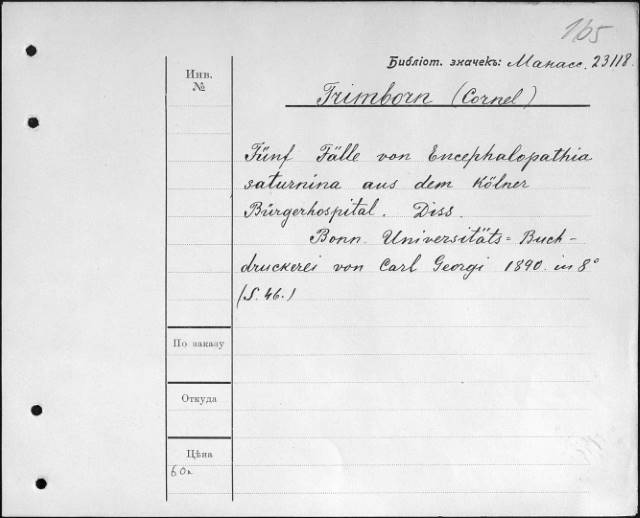 165
Библіот. значекъ: Манасс. 23118.
Инв.
№
Trimborn (Cornel)
Fünf Fälle von Encephalopathia
saturnina aus dem Kölner
Bürgerhospital. Diss.
Bonn. Universitäts=Buch-
druckerei von Carl Georgi 1890. in 8°
(S. 46.)
По заказу
Откуда
Цѣна
60к